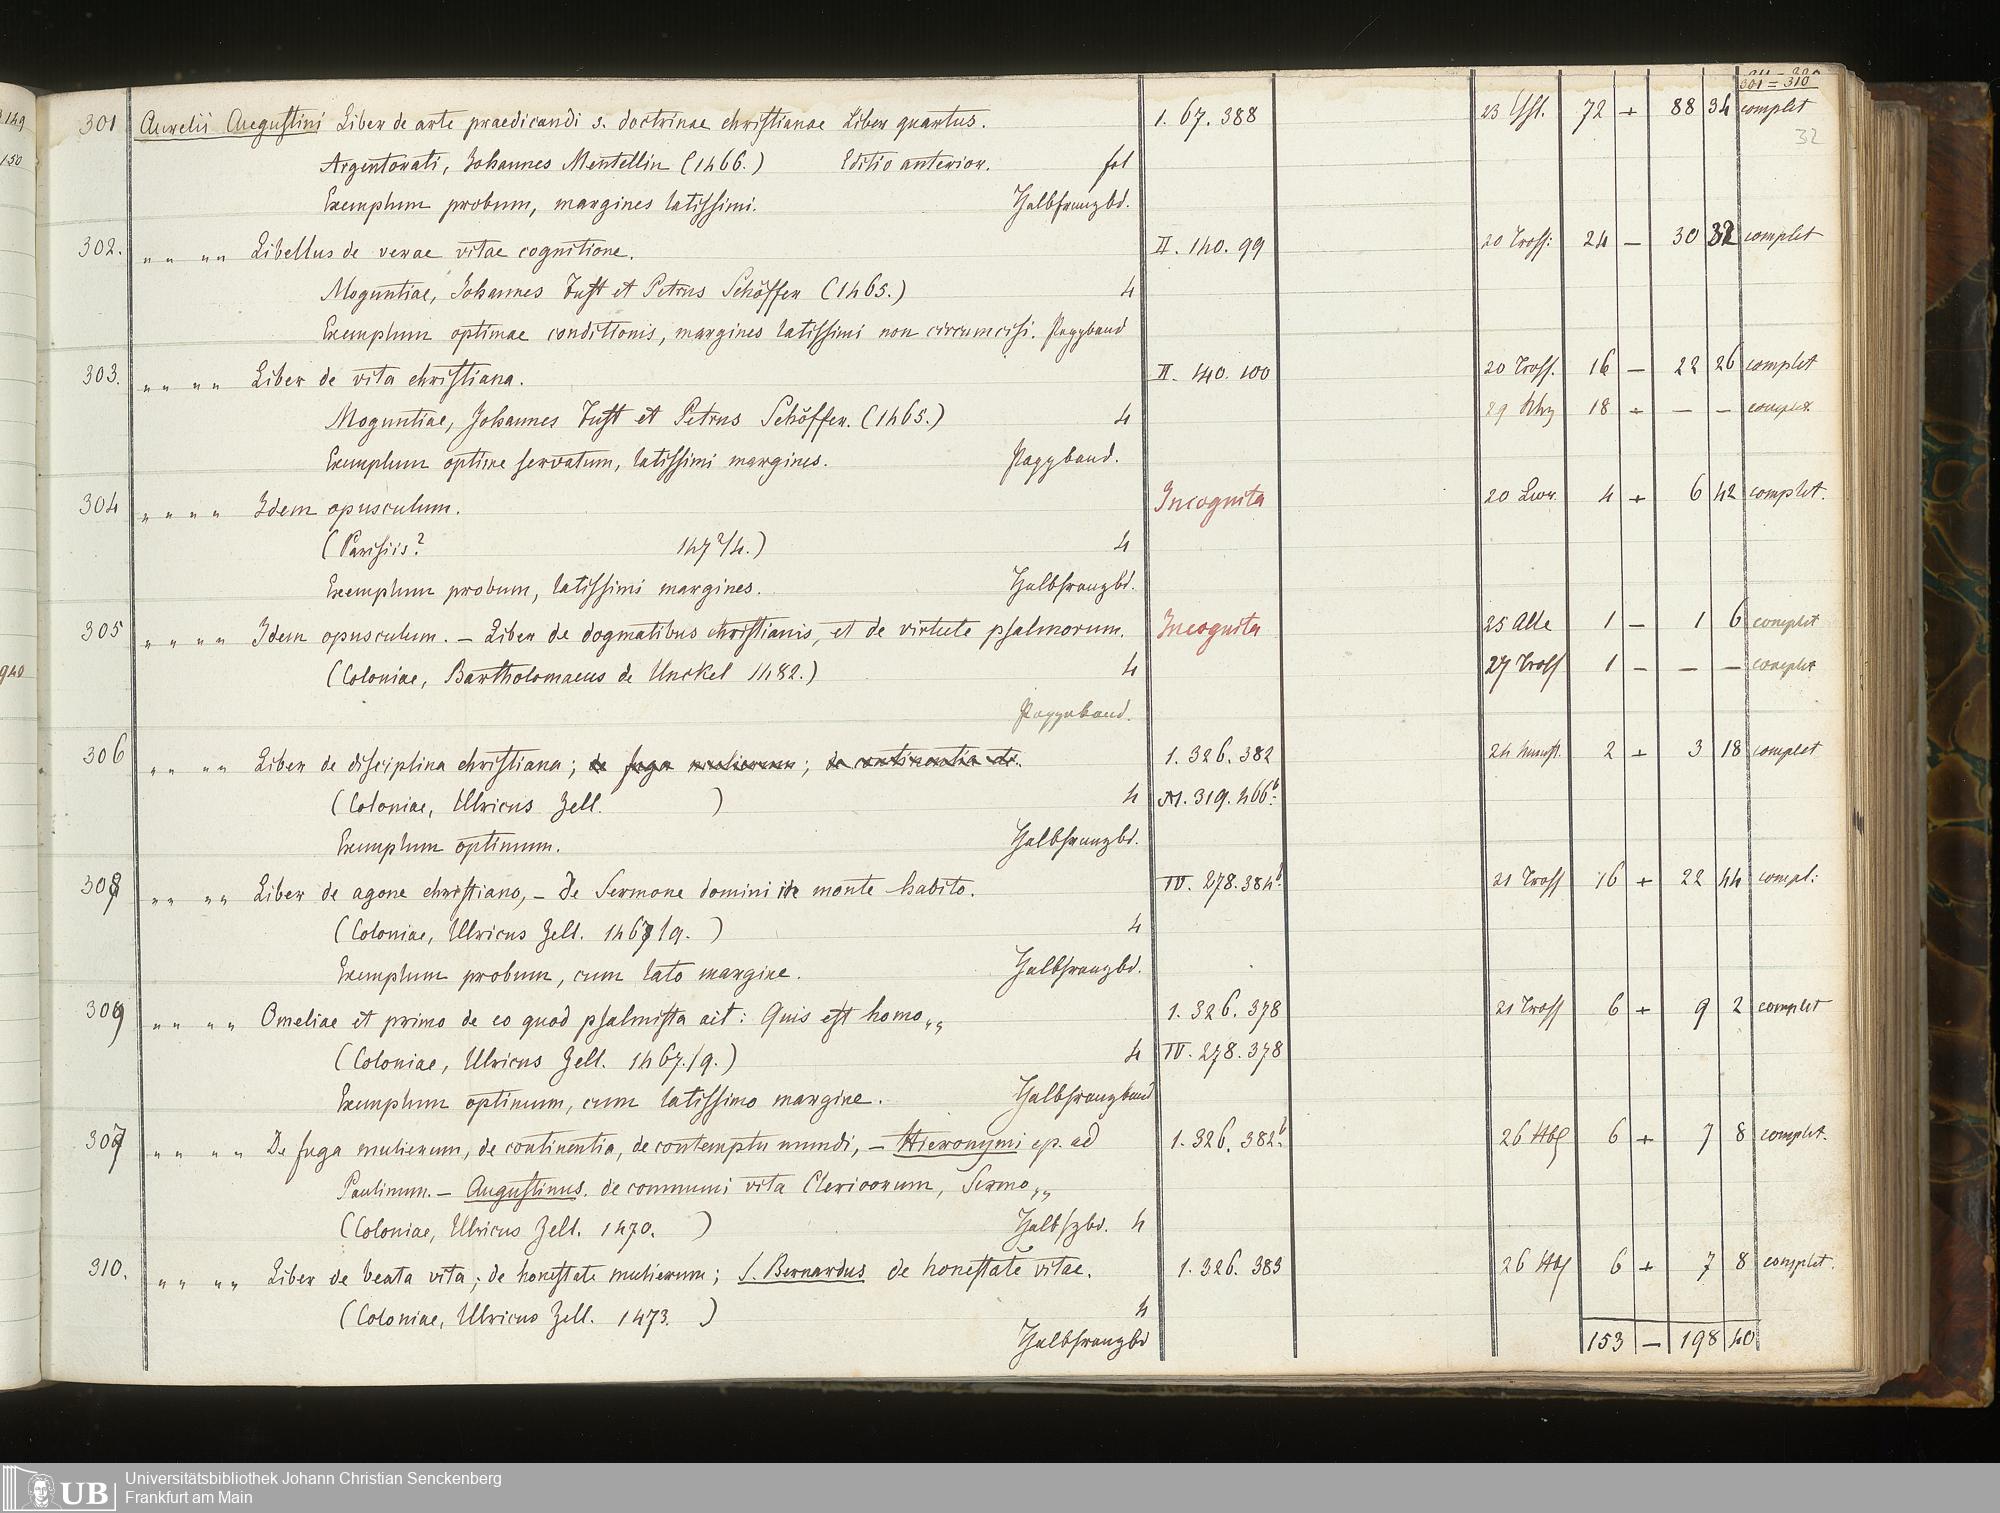 301 = 310
301 Aurelii Augustini Liber de arte praedicandi s. doctrinae christianae Liber quartus. 1. 67. 388 72 88 34 complet
32
Argentorati, Johannes Mentellin (1466.) Editio anterior. fol
Exemplum probum, margines latissimi. Halbfranzbd.
302. „ „ „ „ Libellus de verae vitae cognitione. II. 140. 99 20 Tross: 24 — 30 32 complet
Moguntiae, Johannes Fust et Petrus Schöffer (1465.) 4
Exemplum optimae conditionis, margines latissimi non circumcisi. Pappband
303. „ „ „ „ Liber de vita christiana. II. 140. 100 20 Tross. 16 — 22 26 complet
Moguntiae, Johannes Fust et Petrus Schöffer. (1465.) 4 18 — — complet
Exemplum optime servatum, latissimi margines. Pappband.
304 „ „ „ „ Idem opusculum. Incognita 4 6 42 complet.
(Parisiis? 147?/4.) 4
Exemplum probum, latissimi margines. Halbfranzbd.
305 „ „ „ „ Idem opusculum. — Liber de dogmatibus christianis, et de virtute psalmorum. Incognita 25 1 — 1 6 complet
(Coloniae, Bartholomaeus de Unckel 1482.) 4 27 Tross 1 — — — complet
Pappband.
306 „ „ „ „ Liber de disciplina christiana; de fuga mulierum; de continentia etc. 1. 326. 382 2 3 18 complet
(Coloniae, Ulricus Zell. ) 4 319. 466b.
Exemplum optimum. Halbfranzbd.
308 „ „ „ „ Liber de agone christiano, — De Sermone domini in monte habito. IV. 278. 384b. 21 Tross 16 + 22 44 compl:
(Coloniae, Ulricus Zell. 1467/9. ) 4
Exemplum probum, cum lato margine. Halbfranzbd.
309 „ „ „ „ Omeliae et primo de eo quod psalmista ait: Quis est homo„„ 1. 326. 378 21 Tross 6 + 9 2 complet
(Coloniae, Ulricus Zell. 1467./9.) 4 IV. 278. 378
Exemplum optimum, cum latissimo margine. Halbfranzband
307 „ „ „ „ De fuga mulierum, de continentia, de contemptu mundi, — Hieronymi ep. ad 1. 326. 382b. 26 6 + 7 8 complet.
Paulinum. — Augustinus. de communi vita Clericorum, Sermo„„
(Coloniae, Ulricus Zell. 1470. ) Halbfzbd. 4
310. „ „ „ „ Liber de beata vita; de honestate mulierum; S. Bernardus de honestate vitae. 1. 326. 383 26 6 + 7 8 complet.
(Coloniae, Ulricus Zell. 1473. ) 4
Halbfranzbd 153 — 198 40
149
150
940
UB Universitätsbibliothek Johann Christian Senckenberg
Frankfurt am Main